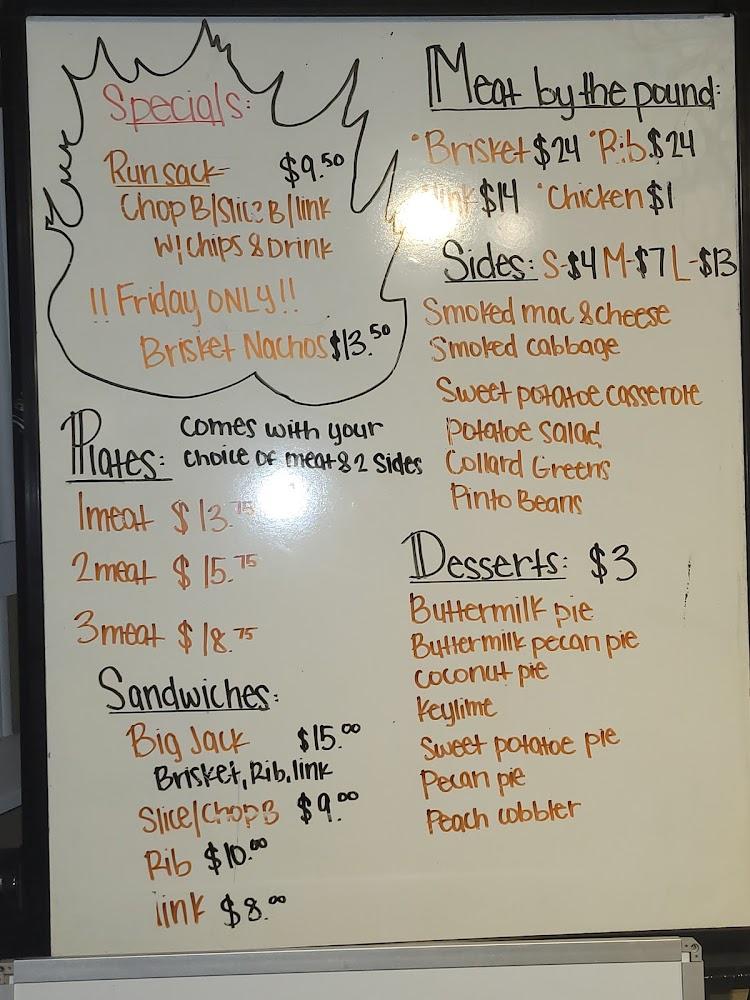 Specials:
Run sack - $9.50
Chop B/Slice B/link
w/ chips & Drink
!! Friday ONLY!!
Brisket Nachos $13.50
Plates: comes with your
choice of meat & 2 sides
1meat $13.75
2meat $15.75
3meat $18.75
Sandwiches:
Big Jack $15.00
Brisket, Rib, link
Slice/Chop B $9.00
Rib $10.00
link $8.00
Meat by the pound:
°Brisket $24 °Rib $24
link $14 °Chicken $1
Sides: S-$4 M-$7 L-$13
Smoked mac & cheese
Smoked cabbage
Sweet potatoe casserole
Potatoe Salad
Collard Greens
Pinto Beans
Desserts: $3
Buttermilk pie
Buttermilk pecan pie
coconut pie
Keylime
Sweet potatoe pie
Pecan pie
Peach cobbler